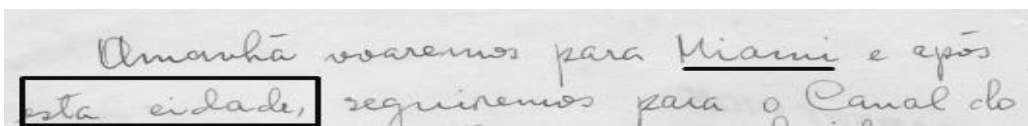 Amanhã voaremos para Miami e após
esta cidade, seguiremos para o Canal do